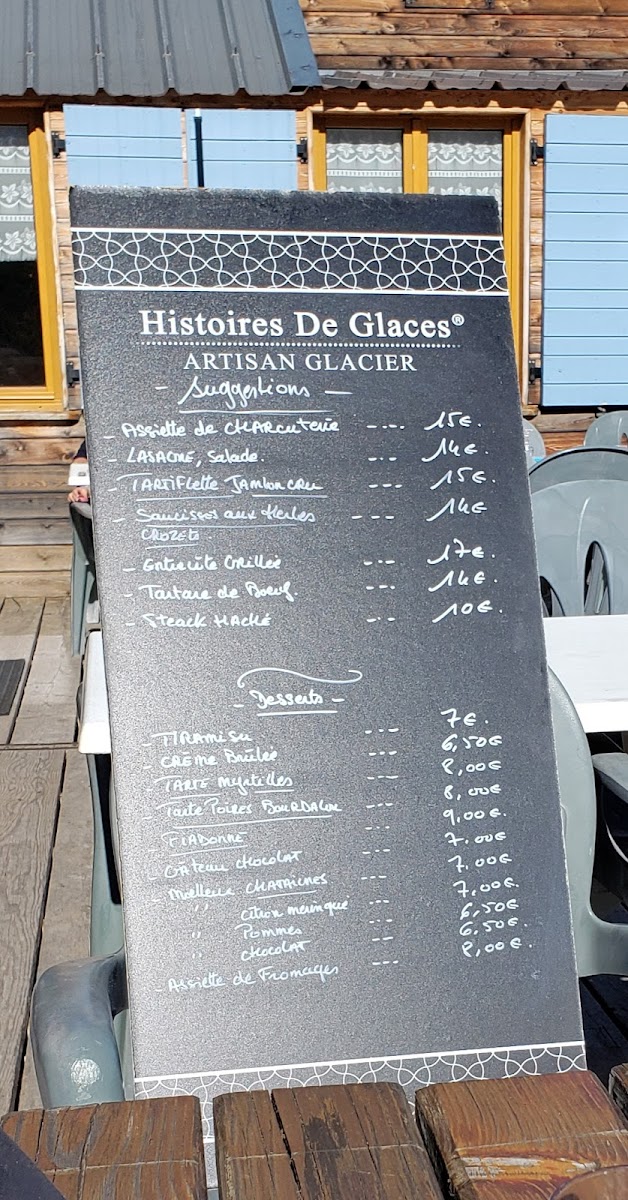 Histoires De Glaces®
ARTISAN GLACIER
- Suggestions -
- Assiette de CHARCUTERIE ---- 15€.
- LASAGNE, Salade. --- 14€.
- TARTIFLETTE JAMBON CRU ---- 15€.
- Saucisses aux Herbes ---- 14€
CROZETS.
- Entrecôte Grillée ---- 17€.
- Tartare de Boeuf. ---- 14€.
- Steack HACHÉ --- 10€.
- Desserts -
- TIRAMISU --- 7€.
- CRÈME BRÛLÉE --- 6,50€
- TARTE Myrtilles --- 8,00€
- Tarte Poires BOURDALOUE --- 8,00€
- FIADONNE --- 9,00€.
- GÂTEAU CHOCOLAT --- 7,00€
- Moelleux CHATAIGNES --- 7,00€.
" citron meringué --- 7,00€.
" Pommes --- 6,50€
" CHOCOLAT --- 6,50€.
- Assiette de Fromages --- 8,00€.